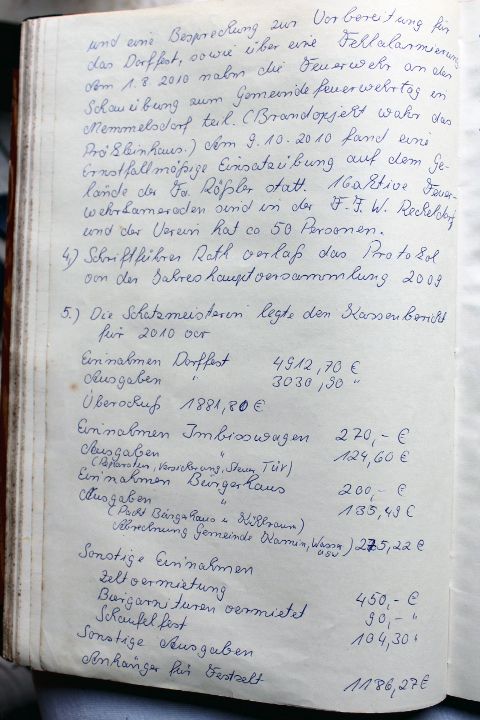 und eine Besprechung zur Vorbereitung für
das Dorffest, sowie über eine Fehlalarmierung
Am 1.8.2010 nahm die Feuerwehr an der
Schauübung zum Gemeindefeuerwehrtag in
Memmelsdorf teil. (Brandopjekt wahr das
Prößleinhaus.) Am 9.10.2010 fand eine
Ernstfallmäßige Einsatzübung auf dem Ge-
lände der Fa. Rößler statt. 16 aktive Feuer-
wehrkameraden sind in der F.F.W. Reckendorf
und der Verein hat ca 50 Personen.
4.) Schriftführer Rath verlaß das Protokol
von der Jahreshauptversammlung 2009
5.) Die Schatzmeisterin legte den Kassenbericht
für 2010 vor
Einnahmen Dorffest 4912,70 €
Ausgaben " 3030,90 "
Überschuß 1881,80 €
Einnahmen Imbisswagen 270,- €
Ausgaben " 124,60 €
(Reparatur, Versicherung, Steuer, Tüv)
Einnahmen Bürgerhaus 200,- €
Ausgaben " 135,49 €
(Pacht Bürgerhaus u. Kühlraum)
Abrechnung Gemeinde (Kamin, Wasser usw) 275,22 €
Sonstige Einnahmen
Zeltvermietung 450,- €
Bargarnituren vermietet 90,- "
Schaufelfest 104,30 "
Sonstige Ausgaben
Anhänger für Festzelt 1186,27 €